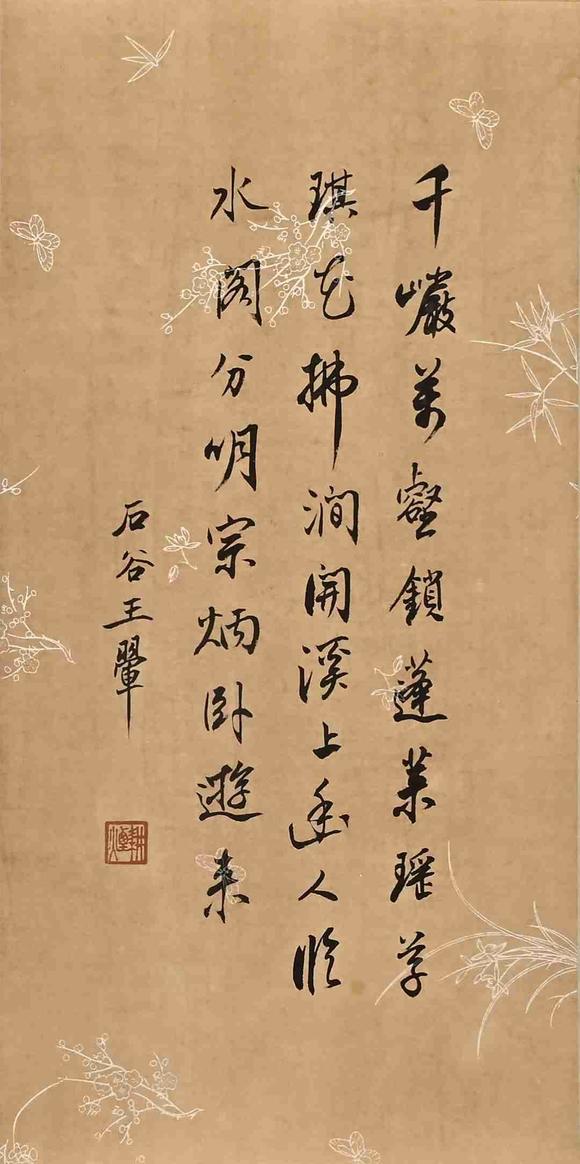 千巖萬壑鎖蓬萊瑶草
琪花拂澗開溪上幽人臨
水閣分明宗炳卧遊来
石谷王翬
耕煙